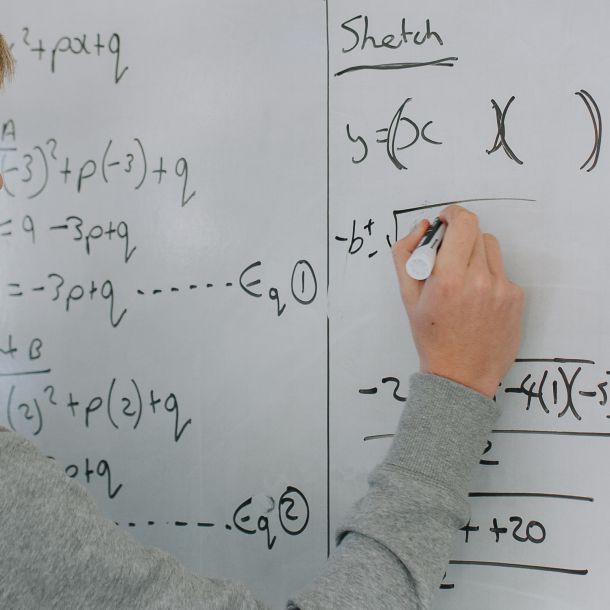 ²+px+q
A
(-3)²+p(-3)+q
=9-3p+q
=-3p+q ------ Eq ①
+ B
(2)²+p(2)+q
p+q
------ Eq ②
Sketch
y=(x )( )
-b±√
-2 -4(1)(-5
2
+ +20